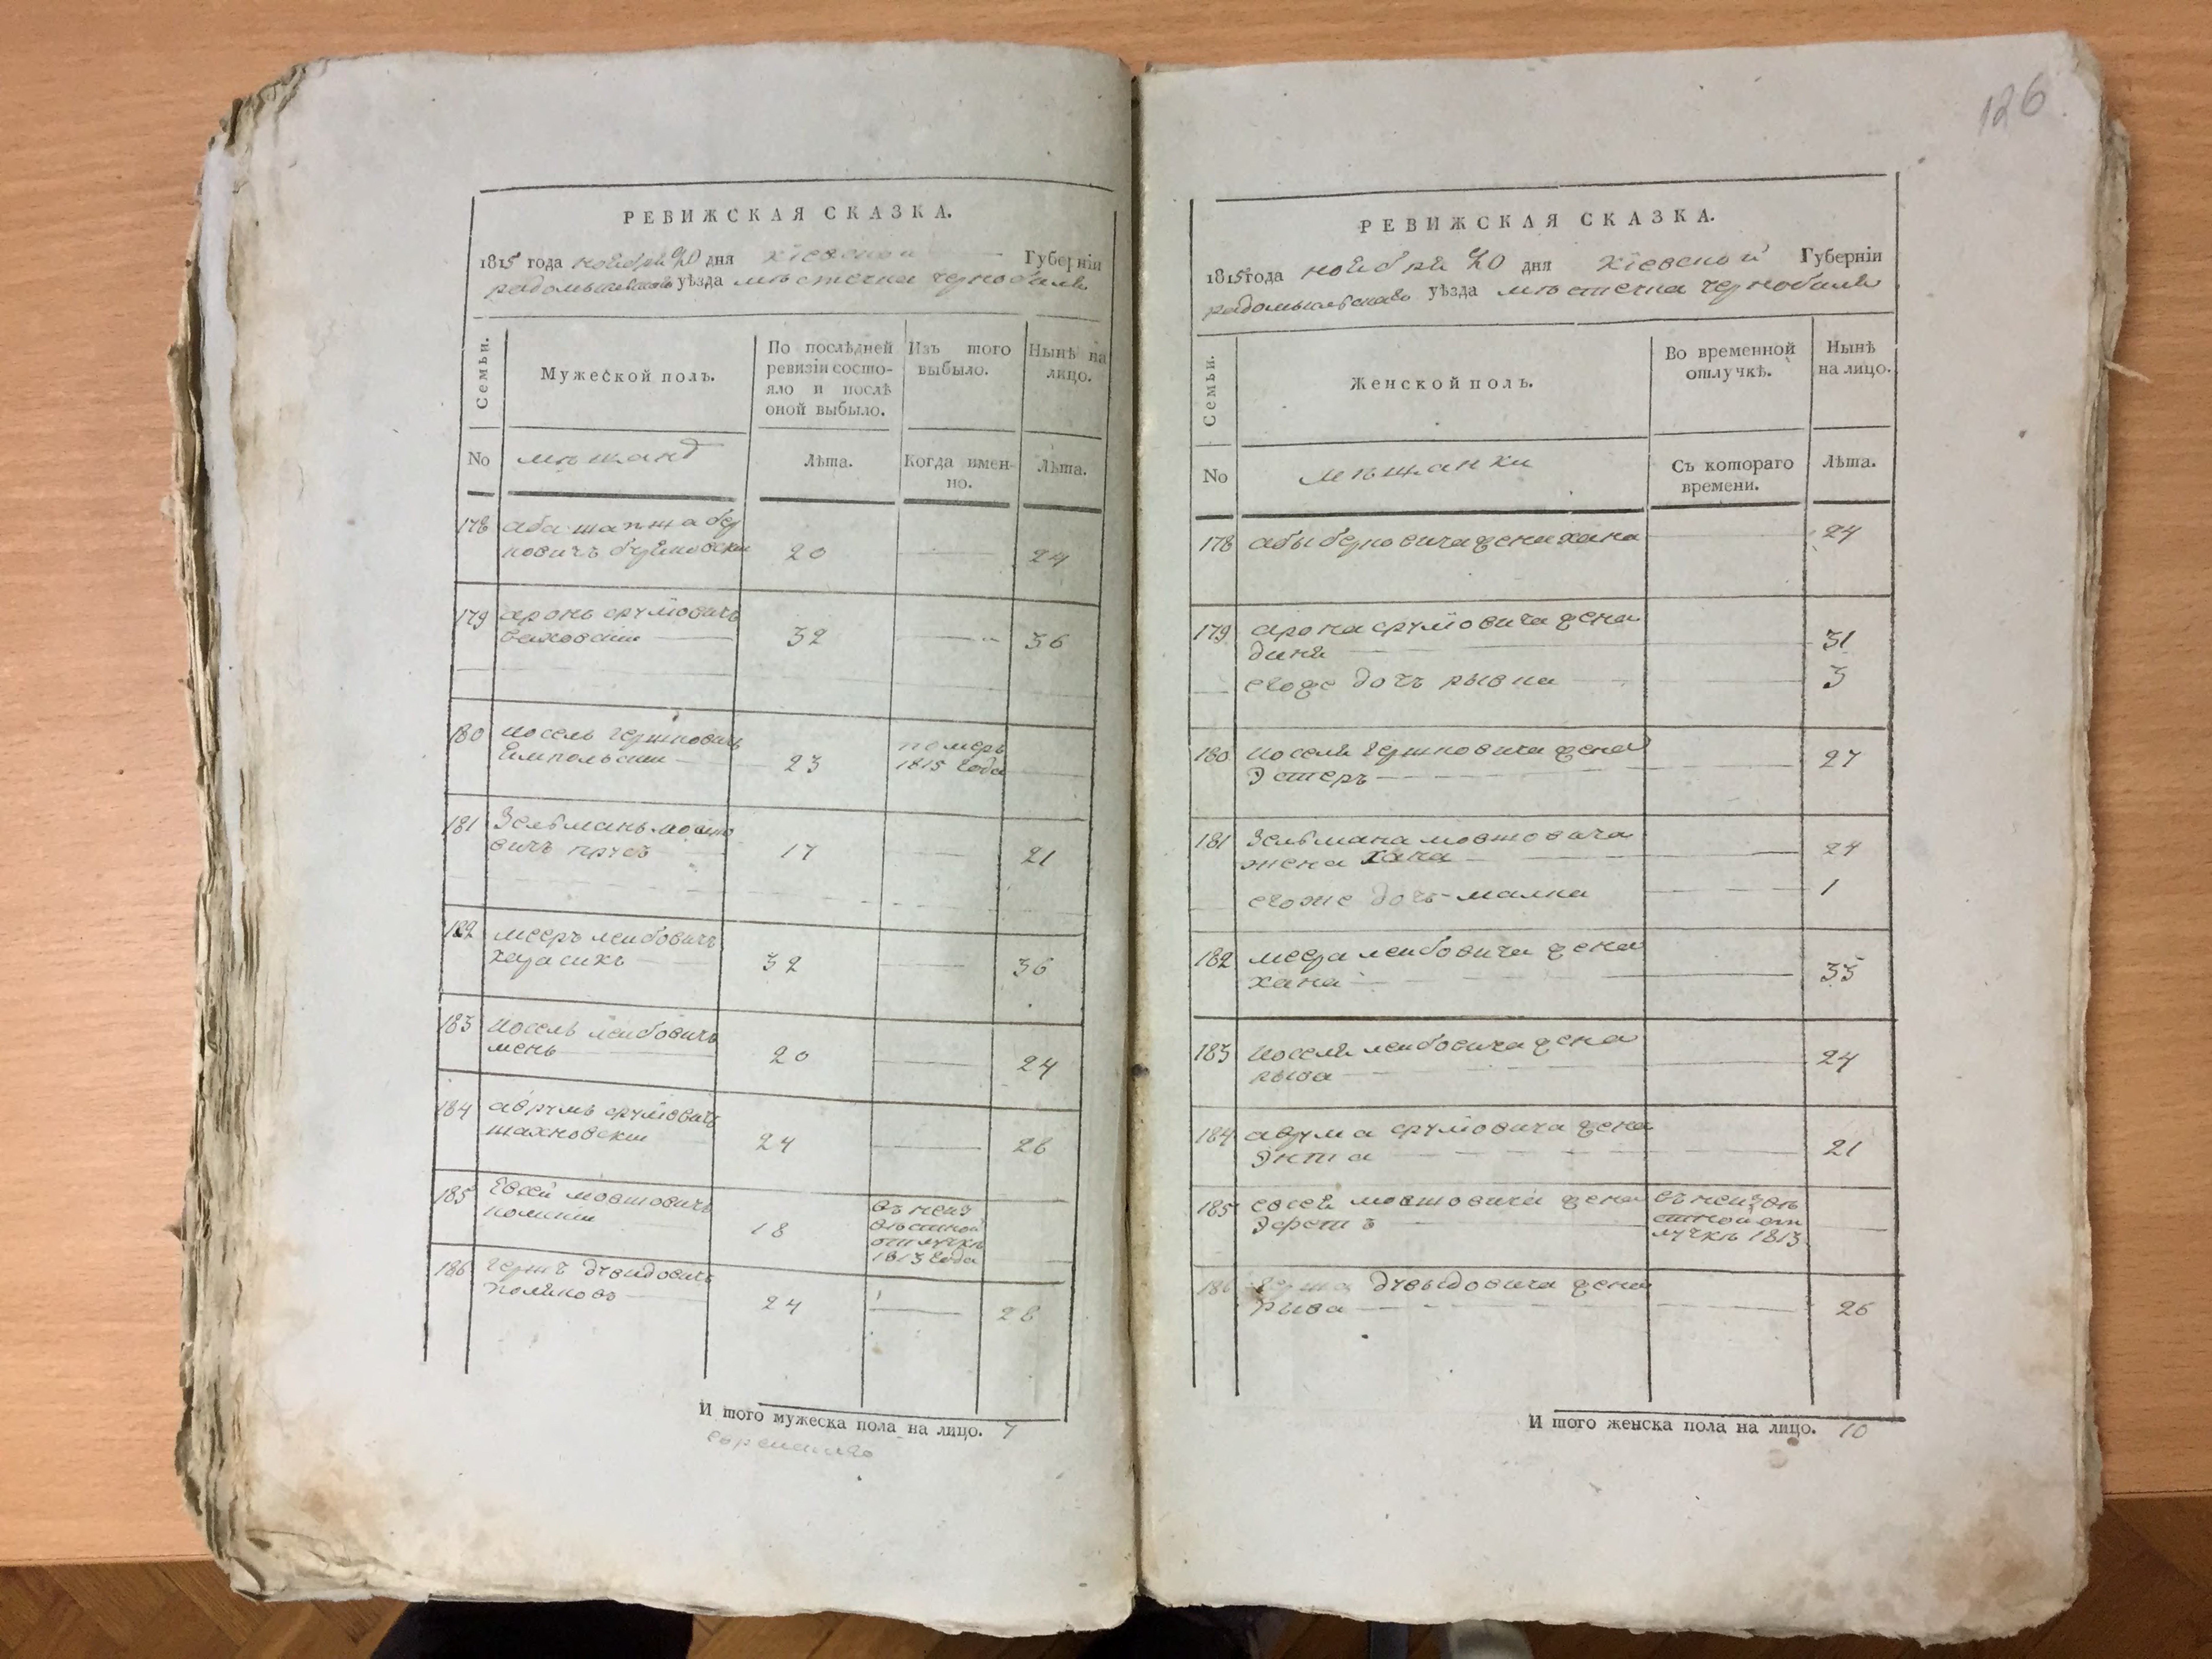 126
РЕВИЖСКАЯ СКАЗКА.
1815 года ноября 20 дня Кіевской Губерніи
радомысльскаго уѣзда мѣстечка чернобиля
Семьи.
Мужеской полъ.
По послѣдней ревизіи состояло и послѣ оной выбыло.
Изъ того выбыло.
Нынѣ на лицо.
No мѣщанѣ Лѣта. Когда именно. Лѣта.
178 аба шапша бер
ковичъ 20 24
179 аронъ срулїовичъ
32 36
180 иосель гершковичъ
Ямпольскии 23 померъ 1815 года
181 Зельманъ мовшо
вичъ прусъ 17 21
182 мееръ леибовичъ
карасикъ 32 36
183 иосель леибовичъ
мень 20 24
184 аврумъ срулїовичъ
шахновскии 24 28
185 Евсей мовшовичъ
18 въ неизвѣстной отлучкѣ 1813 года
186 гершъ дувидовичъ
Поляковъ 24 28
И того мужеска пола на лицо. 7
РЕВИЖСКАЯ СКАЗКА.
1815 года ноября 20 дня Кіевской Губерніи
радомысльскаго уѣзда мѣстечка чернобиля
Семьи.
Женской полъ.
Во временной отлучкѣ.
Нынѣ на лицо.
No мѣщанки Съ котораго времени. Лѣта.
178 абы берковича жена хана 24
179 арона срулїовича жена
диня 31
егоже дочъ рывка 3
180 иоселя гершковича жена
Эстеръ 27
181 Зельмана мовшовича
жена хана 24
егоже дочъ малка 1
182 меера леибовича жена
хана 33
183 иоселя леибовича жена
рыва 24
184 аврума срулїовича жена
Энта 21
185 евсея мовшовича жена
въ неизвѣстной отлучкѣ 1813
186 герша дувыдовича жена
Рива 26
И того женска пола на лицо. 10